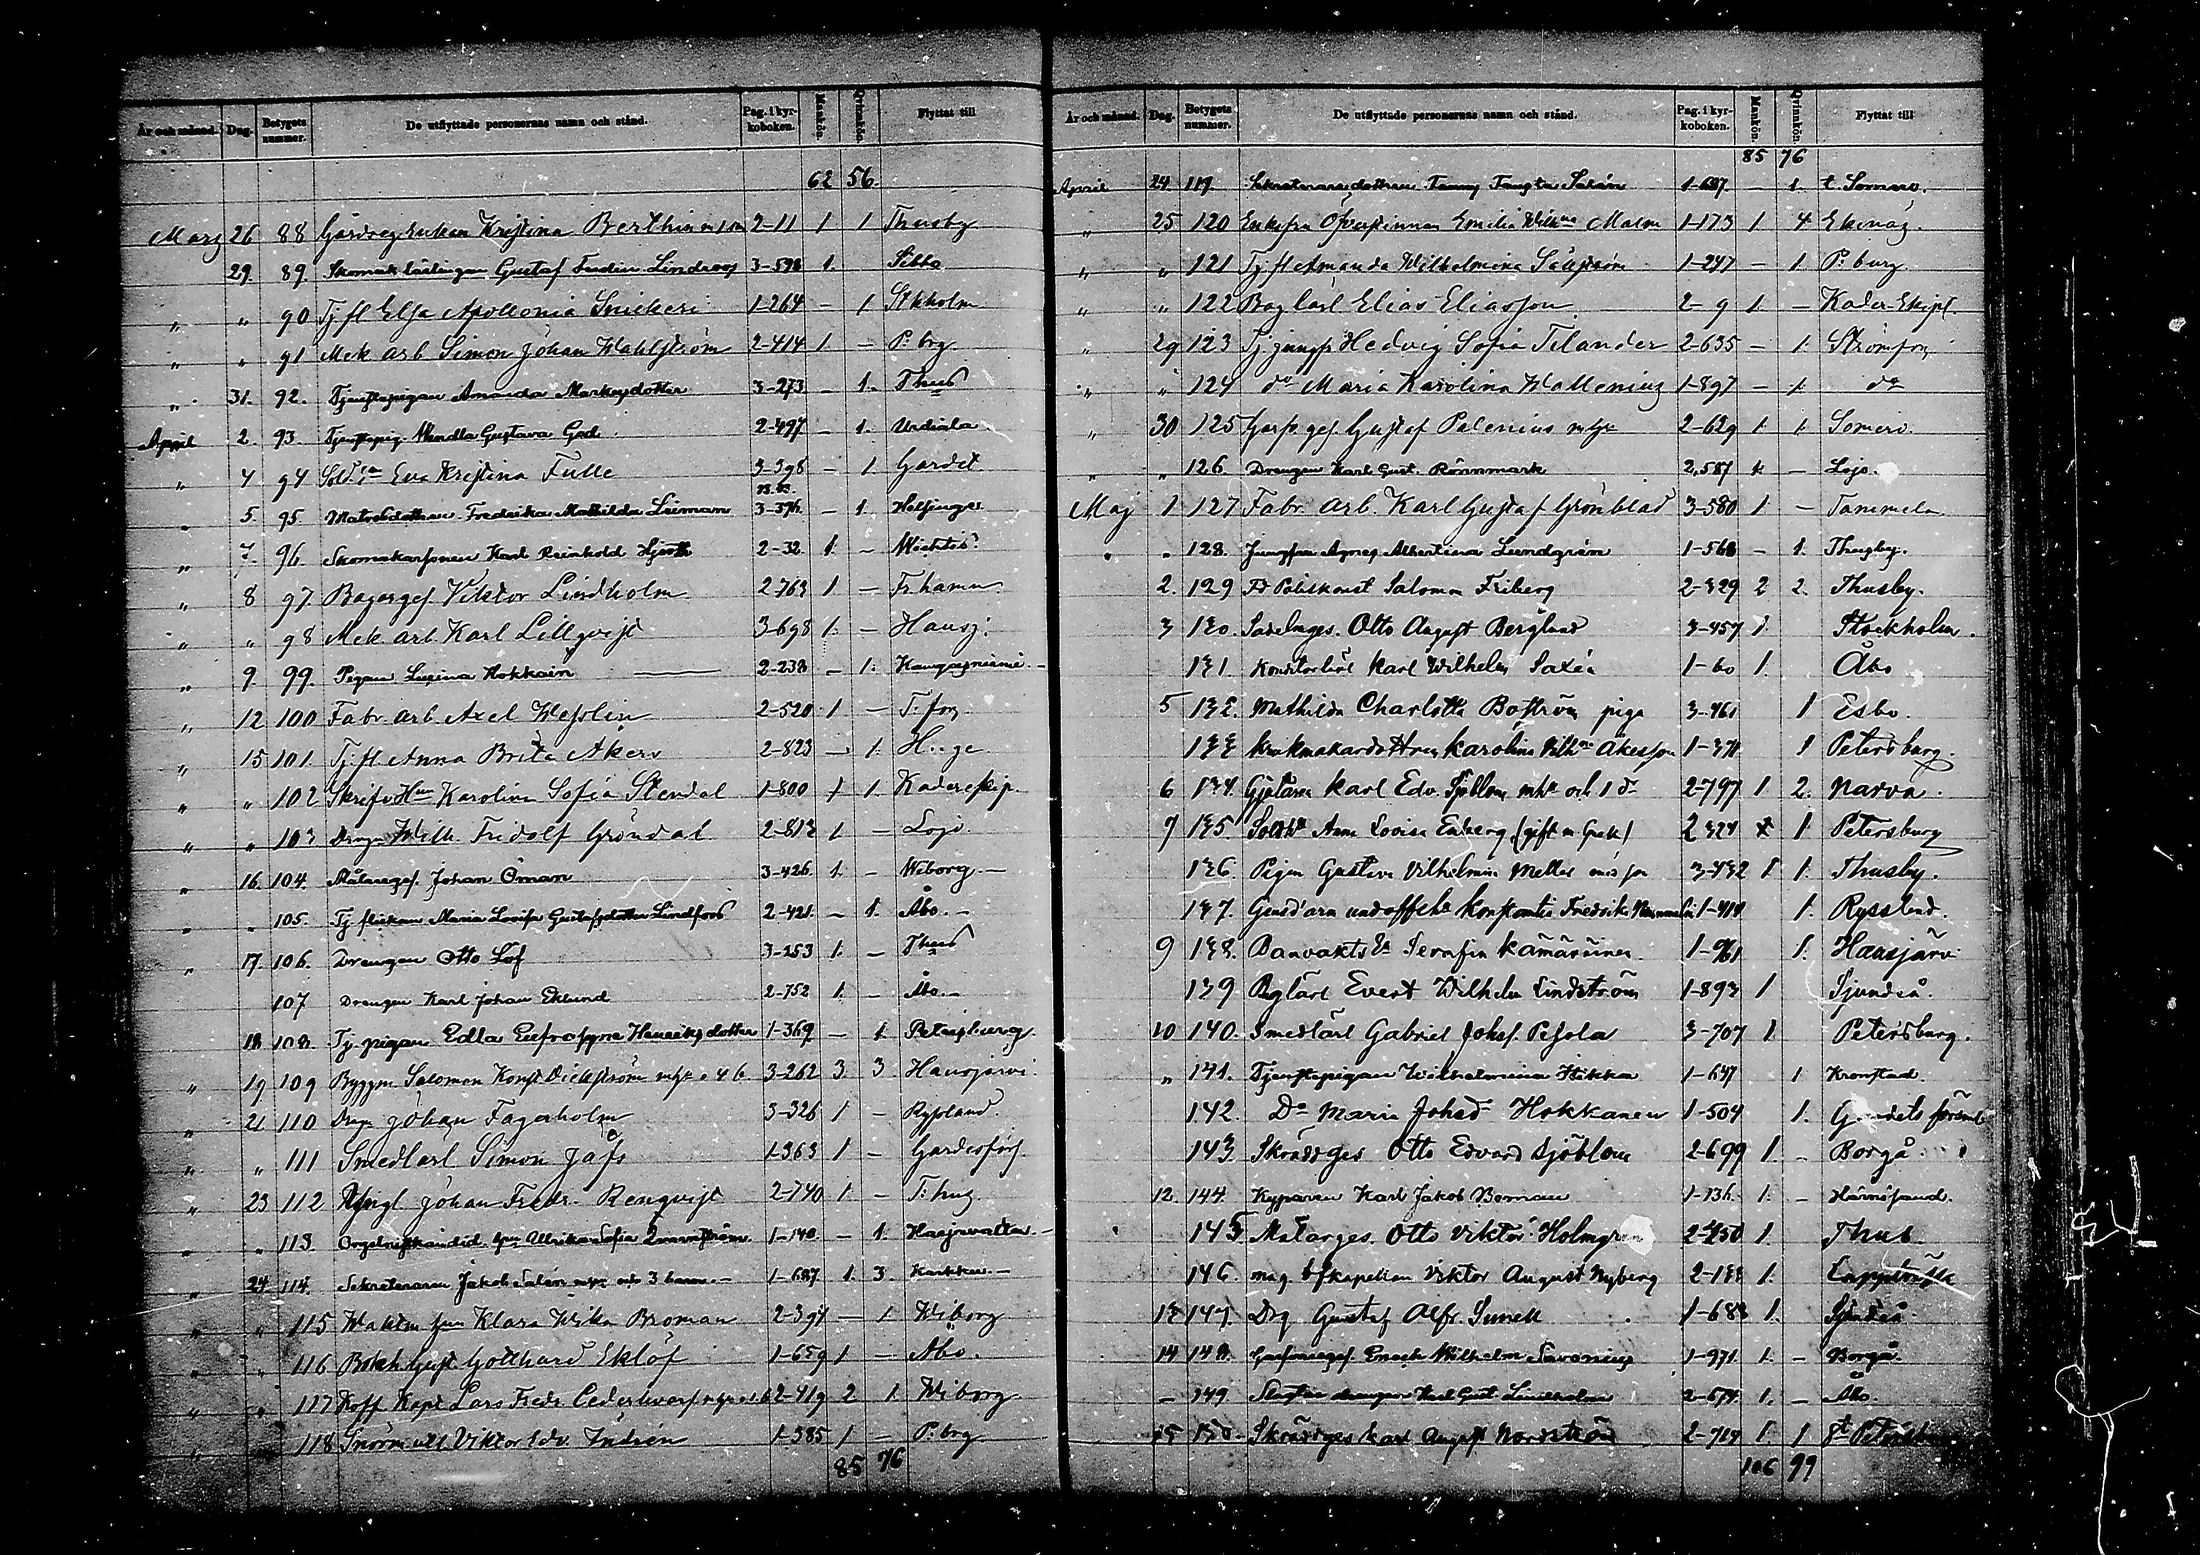 År och månad. Dag. Betygets nummer. De utflyttade personernas namn och stånd. Pag. i kyrkoboken. Mankön. Qvinnkön. Flyttat till
62 56.
Mars 26 88 Gårdseg. Enkan Kristina Berthin 2-11 1 1 Thusby
29. 89. Skomak lärlingen Gustaf Ferdin Lindroos 3-598 1. Sibbo
" " 90 Tj. fl. Elsa Apollonia Snickeri 1-264 — 1 Stkholm
" " 91 Mek arb Simon Johan Wahlström 2-414 1 — P:brg
" 31. 92. Tjenstepigan Amanda Markusdotter 3-273 — 1. Thus
April 2. 93. Tjenstepig. Wendla Gustava God 2-497 — 1. Urdiala
" 4 94 Sold. Eva Kristina Fulle 3-398 — 1 Gardet
" 5. 95. Matrosdottren Fredrika Mathilda Leiman 3-376. — 1. Helsinge
" 7. 96. Skomakarsonen Karl Reinhold Hjorth 2-32. 1. — Wichtis
" 8 97. Bagarges. Viktor Lindholm 2-763 1 — Fr.hamn
" " 98 Mek arb Karl Lillqvist 3-698 1. — Hausj.
" 9. 99. Pigan Lusina Hokkain 2-238 — 1. Kangasniemi.
" 12 100 Fabr arb Axel Wesslin 2-520 1 — T:fors
" 15 101. Tj. fl. Anna Brita Akers 2-823 — 1. H..ge
" " 102 Skrifv Hun Karolina Sofia Stendal 1-800 1 1. Kaderskip.
" " 103 Dreng Wilh. Fridolf Gröndal 2-813 1 — Lojo.
" 16. 104. Målareges. Johan Öman 3-426. 1. — Wiborg.—
" " 105. Tj flickan Maria Lovisa Gustafsdotter Lindfors 2-421. — 1. Åbo.—
" 17. 106. Drengen Otto Löf 3-253 1. — Thus
107 Drengen Karl Johan Eklund 2-752 1. — Åbo.—
18 108. Tj. pigan Edla Eufrosyne Henriksdotter 1-369 — 1. Petersburg.
" 19 109 Byggm. Salomon Konst. Dickström m. h. o 4 b 3-262 3 3. Hausjärvi.
" 21 110 Dreng Johan Fagerholm 3-326 1 — Ryssland.
" " 111 Smedlärl Simon Jåfs 1-363 1 — Gardesförs.
" 23 112 Johan Fredr. Renqvist 2-740 1 — T:hus
" " 113. Ulrika Sofia 1-140 — 1. —
" 24. 114. Sekreteraren Jakob Salén m. h. och 3 barn.— 1-687. 1. 3. Karkku.—
" " 115 Waktm hus Klara Wilha Broman 2-397 — 1 Wiborg
" " 116 Bokh Gust Gotthard Eklöf 1-659 1 — Åbo.
" " 117 Koff Kapt Lars Fredr. Cederhvarf 2-419 2 1. Wiborg
" " 118 Snörm Viktor Edv. Indrén 1-385 1 — P:brg
85 76
År och månad. Dag. Betygets nummer. De utflyttade personernas namn och stånd. Pag. i kyrkoboken. Mankön. Qvinnkön. Flyttat till
85 76
April 24 119. Sekreterare dottren Fanny Salén 1-687. — 1. t. Somero.
" 25 120 Enkefru Öfverstinnan Emilia Wilhna Malm 1-173 1 4 Ekenäs.
" " 121 Tj. fl. Amanda Wilhelmina Sällström 1-247 — 1 P:burg
" " 122 Bag lärl Elias Eliasson. 2-9 1. — Kader-Ekipl.
" 29 123 Tj. jungfr Hedvig Sofia Tilander 2-635 — 1. Strömfors
" " 124 do Maria Karolina Wallenius 1-897 — 1. do
" 30 125 Garf. ges. Gustaf Palenius 2-629 1 1 Somero.
" " 126. Drengen Karl Gust. Rönnmark 2,587 1. — Lojo.
Maj 1 127 Fabr. arb. Karl Gustaf Grönblad 3-580 1. — Tammela
" " 128. Jungfrun Agnes Albertina Lundgrén 1-568 — 1. Thusby.
2. 129 Fd Poliskonst Salomon Friberg 2-329 2 2. Thusby.
3 130. Sadelmges. Otto August Berglund 3-457 1. Stockholm.
131. Konditorlärl Karl Wilhelm Saxén 1-60 1. Åbo
5 132. Mathilda Charlotta Boström piga 3-461 1 Esbo.
133 Karolina Vilhna Åkesson 1-371 1 Petersburg.
6 134. Gjutaren Karl Edv. Sjöblom m. h. och 1 d. 2-797 1 2. Narva.
7 135. Anna Lovisa Enberg (gift m Grek) 2 324 1. Petersburg
136. Pigan Gustava Vilhelmina Meller 3-432 1 1. Thusby.
137. Gensd'arm undoffch. Konstantia Fredrika 1-414 1. Ryssland.
9 138. Banvakts Ea Serafin Kämäräinen 1-961 1. Hausjärvi
139 Baglärl Evert Wilhelm Lindström 1-893 1 Sjundeå.
10 140. Smedlärl Gabriel Johs. Pesola 3-707 1 Petersburg.
" 141. Tjenstepigan Wilhelmina Hikka 1-647 1 Kronstad.
142. Do Maria Johsd Hokkanen 1-504 1. Gardets försml.
143. Skräddges Otto Edvard Sjöblom 2-699 1. — Borgå
12. 144. Kyparen Karl Jakob Boman 1-136. 1. — Hernösand.
145 Målarges. Otto Viktor Holmgren 2-450 1. Thus.
146. mag. o fkapellan Viktor August Nyberg 2-133 1. Lappträsk
13 147. Drg Gustaf Alfr. Sunell 1-683 1. Sjundeå
14 148. Garfvareges. Enoch Wilhelm Savonius 1-971. 1. — Borgå.
— 149. Karl Gust Lindholm 2-674. 1. — Åbo.
15 150. Skräddges Karl August Nordström 2-719 1. 1 St Petersb
106 99